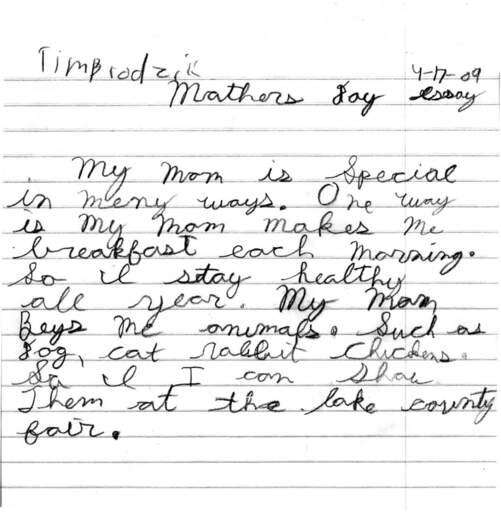 Tim Brodzik
4-17-09
Mathers Day essay
My mom is Special
in meny ways. One way
is My mom makes me
breakfast each morning.
So il stay healthy
all year. My Mom
Beys me animals. Such as
Dog, cat rabbit chickens.
So il I can Show
Them at the lake county
fair.